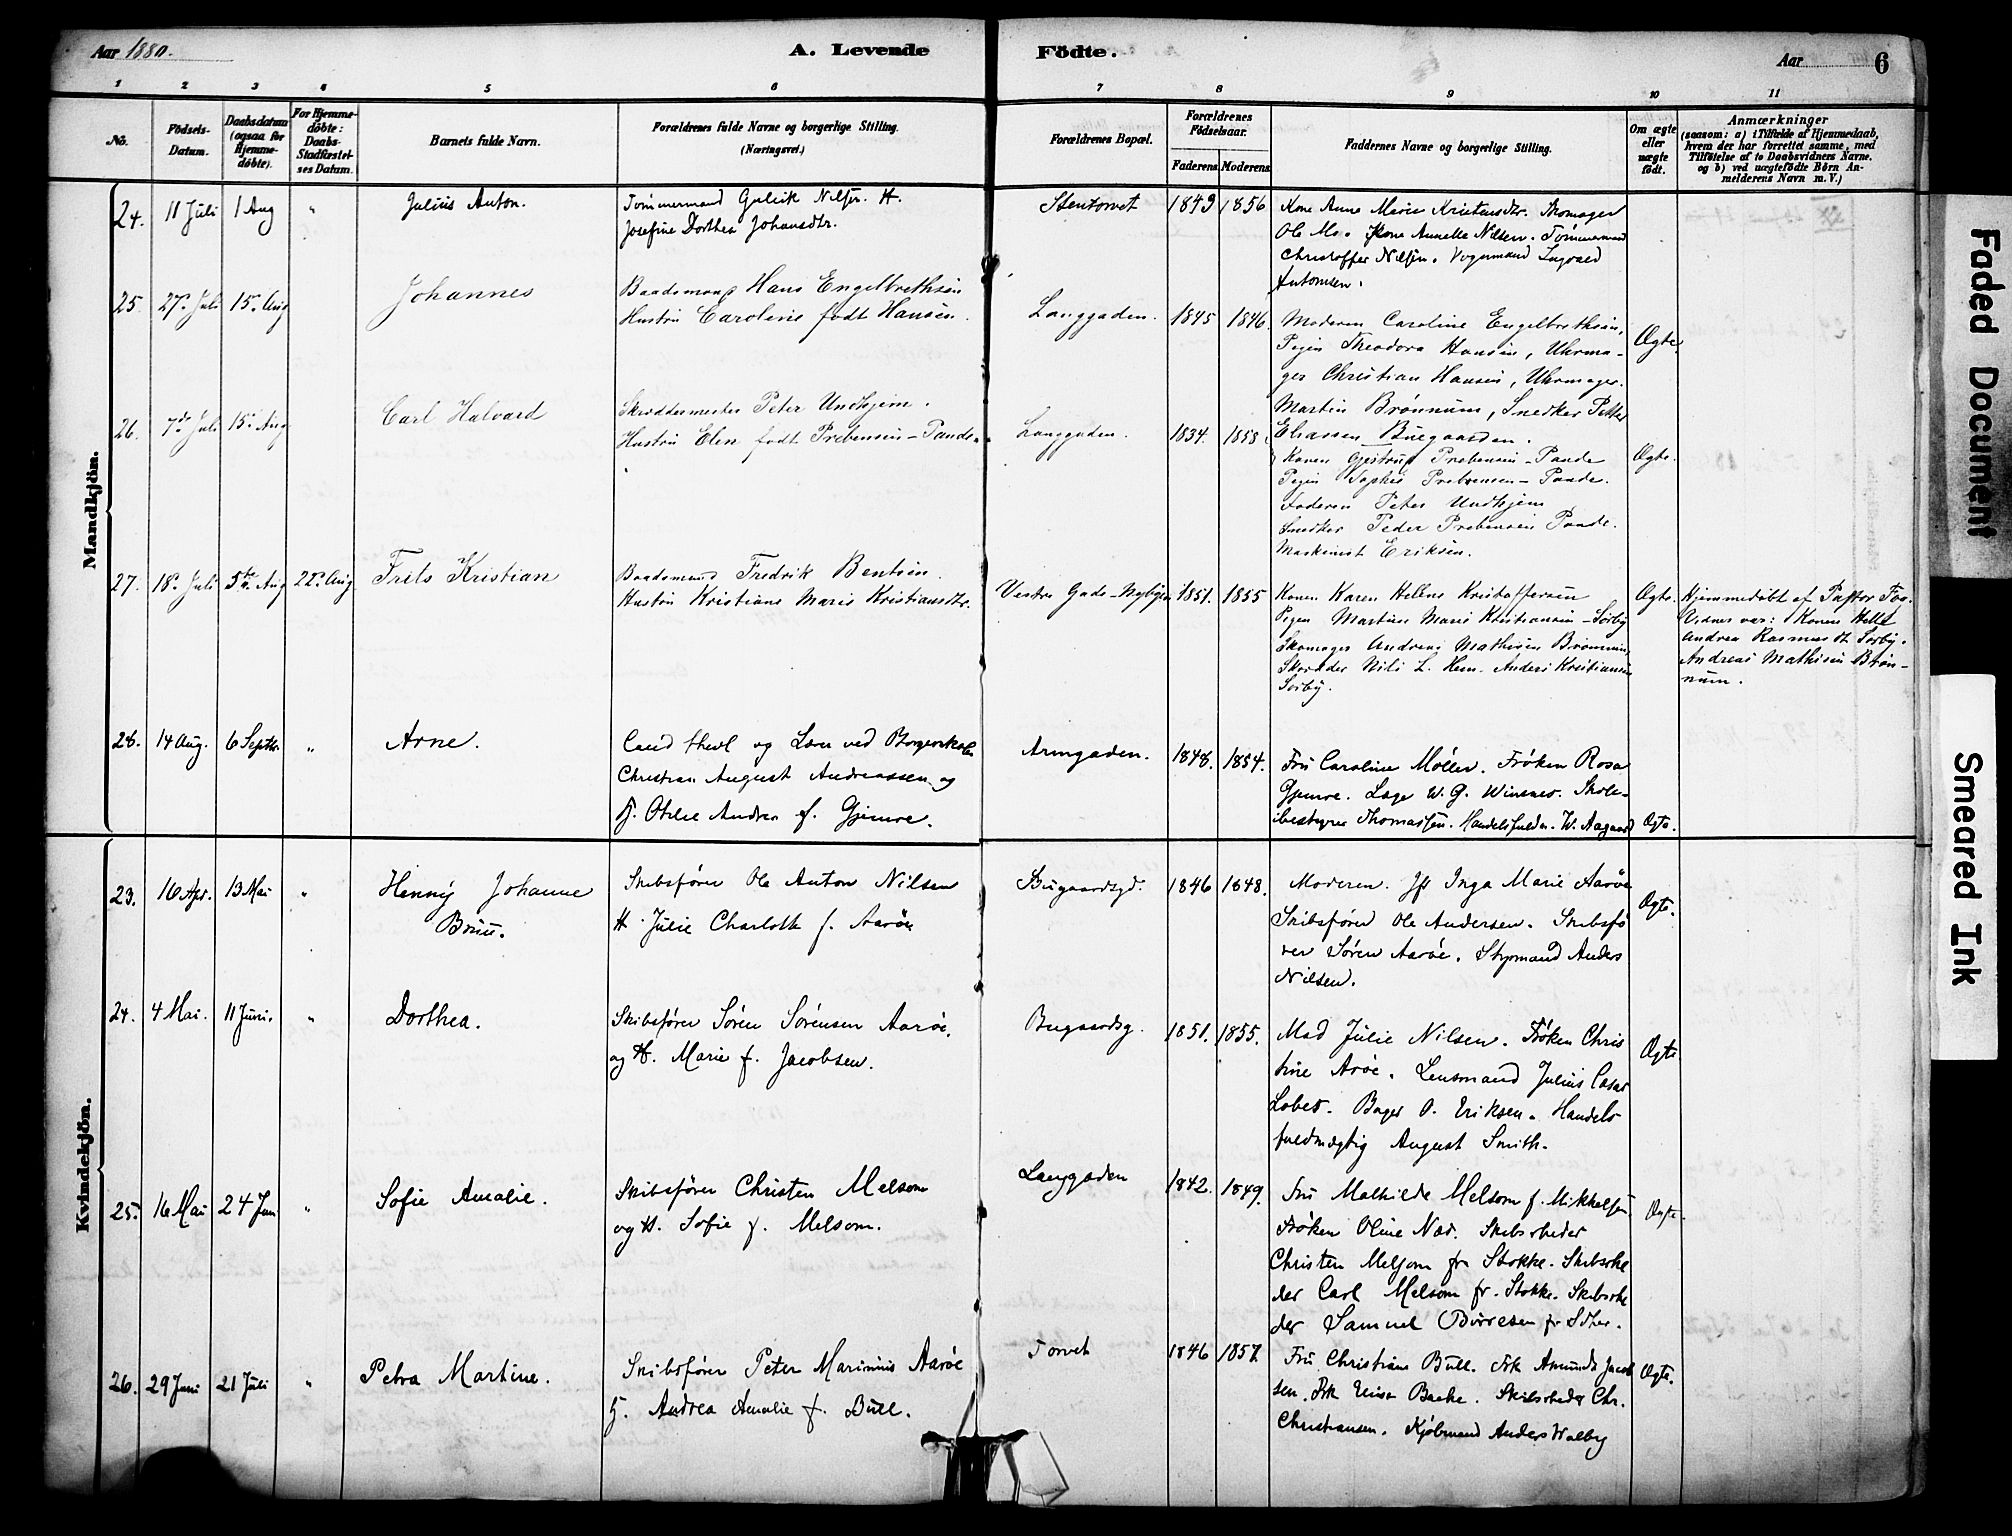 Aar 1880.
A. Levende
Födte.
Aar
6
1 2 3 4 5 6 7 8 9 10 11
No.
Födsels-
Datum.
Daabsdatum
(ogsaa for
Hjemme-
döbte).
For Hjemme-
döbte:
Daabs-
Stadfæstel-
ses Datum.
Barnets fulde Navn.
Forældrenes fulde Navne og borgerlige Stilling.
(Næringsvei.)
Forældrenes Bopæl.
Forældrenes
Födselsaar.
Faderens Moderens
Faddernes Navne og borgerlige Stilling.
Om ægte
eller
uægte
födt.
Anmærkninger
(saasom: a) i Tilfælde af Hjemmedaab,
hvem der har forrettet samme, med
Tilföielse af to Daabsvidners Navne.
og b) ved uægtefödte Börn An-
melderens Navn m. V.)
Mandkjön.
24. 11 Juli 1 Aug " Julius Anton.
Tömmermand Gulick Nilsen. H.
Josefine Dorthea Johansdtr.
Stentorvet 1849 1856
Kone Anne Marie Kristensdtr. Skomager
Ole Mo. Kone Annette Nilsen. Tömmermand
Christoffer Nilsen. Vognmand Ingvald
Antonsen.
25. 27. Juli 15. Aug Johannes
Baadsmand Hans Engelbrethsen
Hustru Caroline födt Hansen.
Langgaden. 1845 1846.
Moderen Caroline Engelbrethsen,
Pigen Theodora Hansen, Uhrma-
ger Christian Hansen, Uhrmager.
Martin Brønnum, Snedker Petter
Eliassen Buegaarden.
Ægte.
26. 7de Juli 15. Aug Carl Halvard
Skræddermester Peter Undhjem.
Hustru Elen födt Prebensen-Paude.
Langgaden. 1834. 1858
Konen Gjertrud Prebensen-Paude
Pigen Sophie Prebensen-Paude.
Faderen Peter Undhjem
Snedker Peder Prebensen Paude.
Maskinist Eriksen.
Ægte.
27. 18. Juli 5te Aug 22. Aug Frits Kristian
Baadsmand Fredrik Bentsen.
Hustru Kristiane Marie Kristiansdtr.
Vestre Gade-Nybyen 1851. 1855
Konen Karen Hellene Kristoffersen
Pigen Martine Marie Kristiansen-Sörby
Skomager Andreas Mathisen Brønnum,
Skrædder Nils L. Hem. Anders Kristiansen
Sörby.
Ægte.
Hjemmedöbt af Pastor Fos.
Vidner var: Konen Helle
Andrea Rasmusdt. Sørby.
Andreas Mathisen Brön-
num.
28. 14 Aug. 6 Septbr. " Arne.
Cand theol og Lærer ved Borgerskolen
Christian August Andreassen og
H. Otilie Andrea f. Gjemre.
Armgaden. 1848. 1854.
Fru Caroline Møller. Frøken Rosa
Gjemre. Læge W. G. Winsnes. Skole-
bestyrer Thomassen. Handelsfuldm. W. Aagaard
Ægte.
Kvindekjön.
23. 16 Apr. 13 Mai " Henny Johanne
Bruu.
Skibsfører Ole Anton Nilsen
H. Julie Charlotte f. Aarøe
Bugaardsgd. 1846 1848.
Moderen. Jfr Inga Marie Aarøe
Skibsfører Ole Andersen. Skibsfö
rer Sören Aarøe. Styrmand Anders
Nilsen.
Ægte.
24. 4 Mai. 11 Juni. " Dorthea.
Skibsfører Sören Sörensen Aarøe.
og H. Marie f. Jacobsen.
Bugaardsg. 1851. 1855.
Mad Julie Nilsen. Frøken Chris
tine Arøe. Lensmand Julius Cæsar
Lobes. Bager O. Eriksen. Handels
fuldmægtig August Smith.
Ægte
25. 16 Mai 24 Juni " Sofie Amalie.
Skibsfører Christen Melsom
og H. Sofie f. Melsom.
Langgaden 1842. 1849.
Fru Mathilde Melsom f. Mikkelsen.
Frøken Oline Næs. Skibsrheder
Christen Melsom fr Stokke. Skibsrhe
der Carl Melsom fr. Stokke. Skibsrhe
der Samuel Börresen fr
Ægte.
26. 29 Juni 21 Juli " Petra Martine.
Skibsfører Peter Marinius Aarøe
H. Andrea Amalie f. Bull.
Torvet 1846 1857.
Fru Christiane Bull. Frk Amunda Jacob
sen. Frk Elisa Bache. Skibsrheder Chr.
Christiansen. Kjöbmand Anders Walby
Ægte.
Faded Document
Smeared Ink